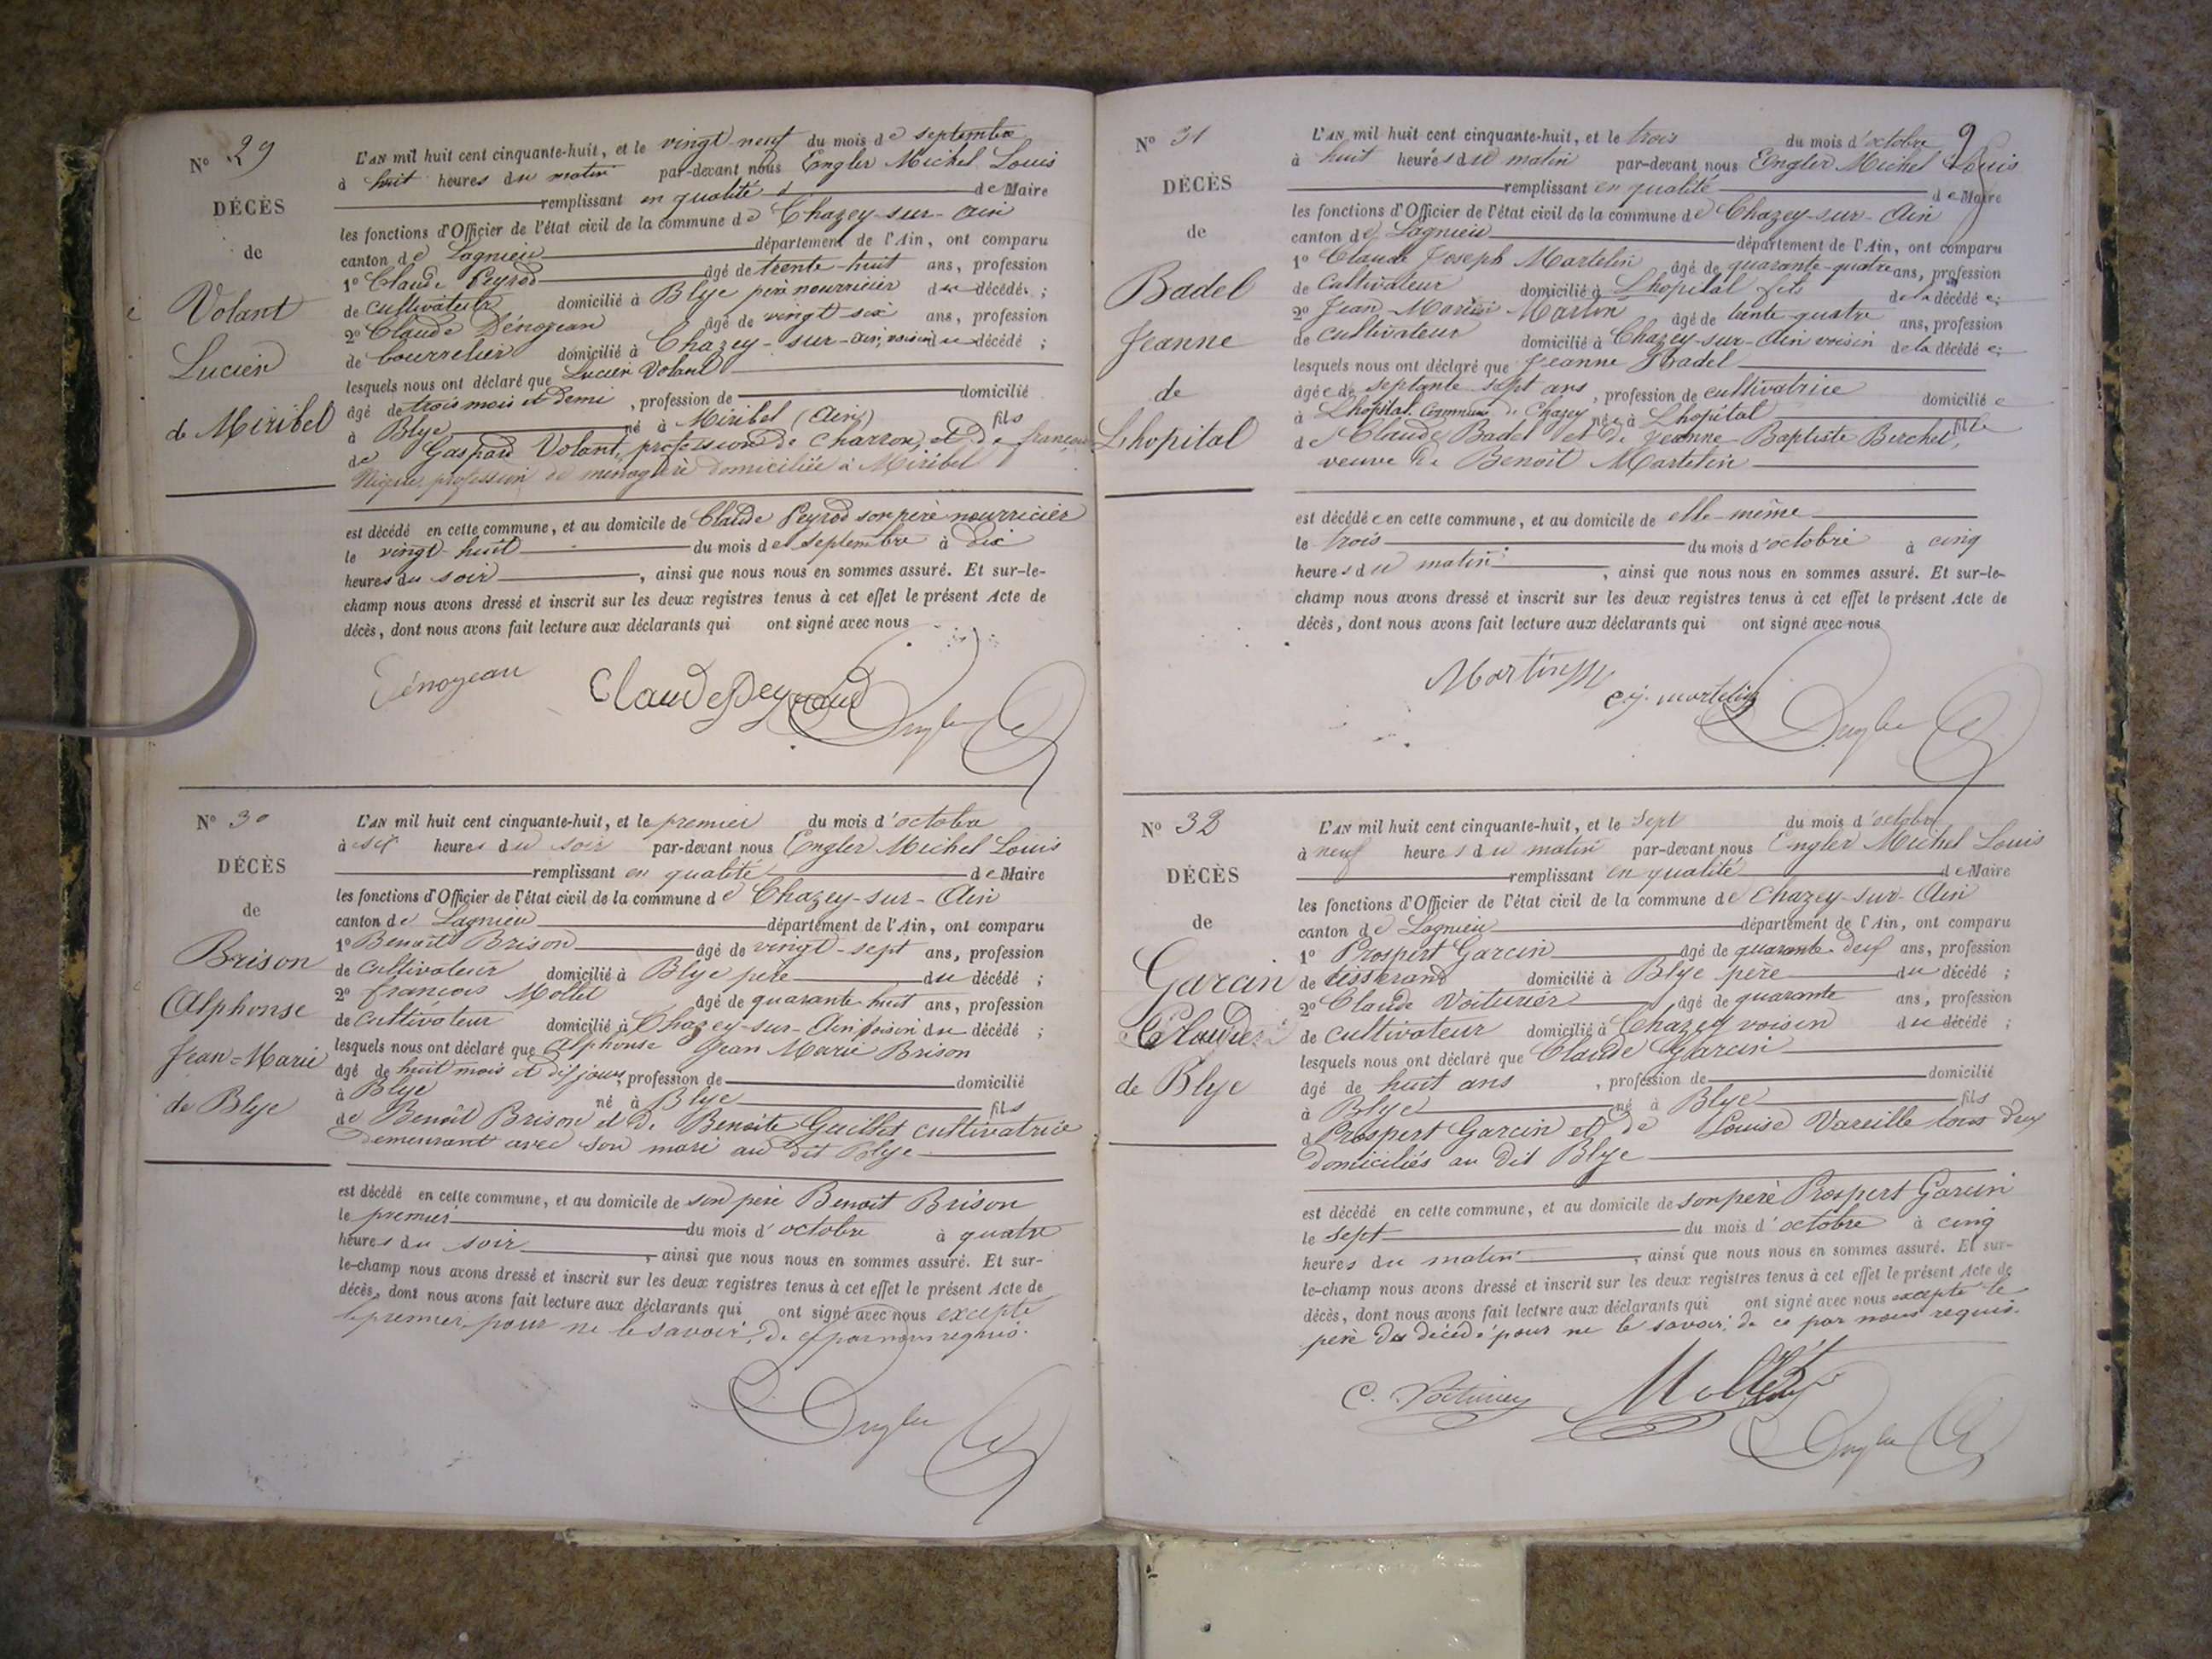 N° 29
DÉCÈS
de
Volant
Lucien
de Miribel
L'AN mil huit cent cinquante-huit, et le vingt-neuf du mois de septembre
à huit heures du matin par-devant nous Engler Michel Louis
remplissant en qualité de Maire
les fonctions d'Officier de l'état civil de la commune de Chazey-sur-Ain
canton de Lagnieu département de l'Ain, ont comparu
1° Claude Peyrod âgé de trente-huit ans, profession
de cultivateur domicilié à Blye père nourricier du décédé ;
2° Claude Dénojean âgé de vingt-six ans, profession
de bourrelier domicilié à Chazey-sur-Ain, voisin du décédé ;
lesquels nous ont déclaré que Lucien Volant
âgé de trois mois et demi , profession de domicilié
à Blye né à Miribel (Ain) fils
de Gaspard Volant, profession de charron, et de
profession de ménagère domiciliée à Miribel
est décédé en cette commune, et au domicile de Claude Peyrod son père nourricier
le vingt-huit du mois de septembre à dix
heures du soir , ainsi que nous nous en sommes assuré. Et sur-le-
champ nous avons dressé et inscrit sur les deux registres tenus à cet effet le présent Acte de
décès, dont nous avons fait lecture aux déclarants qui ont signé avec nous
Dénojean Claude Peyraud Engler
N° 30
DÉCÈS
de
Brison
Alphonse
Jean-Marie
de Blye
L'AN mil huit cent cinquante-huit, et le premier du mois d'octobre
à six heures du soir par-devant nous Engler Michel Louis
remplissant en qualité de Maire
les fonctions d'Officier de l'état civil de la commune de Chazey-sur-Ain
canton de Lagnieu département de l'Ain, ont comparu
1° Benoît Brison âgé de vingt-sept ans, profession
de cultivateur domicilié à Blye père du décédé ;
2° françois Mollet âgé de quarante-huit ans, profession
de cultivateur domicilié à Chazey-sur-Ain voisin du décédé ;
lesquels nous ont déclaré que Alphonse Jean Marie Brison
âgé de huit mois et dix jours, profession de domicilié
à Blye né à Blye fils
de Benoît Brison et de Benoîte Guillet cultivatrice
demeurant avec son mari au dit Blye
est décédé en cette commune, et au domicile de son père Benoît Brison
le premier du mois d'octobre à quatre
heures du soir , ainsi que nous nous en sommes assuré. Et sur-
le-champ nous avons dressé et inscrit sur les deux registres tenus à cet effet le présent Acte de
décès, dont nous avons fait lecture aux déclarants qui ont signé avec nous excepté
le premier pour ne le savoir, de ce par nous requis.
Engler
9
N° 31
DÉCÈS
de
Badel
Jeanne
de
Lhopital
L'AN mil huit cent cinquante-huit, et le trois du mois d'octobre
à huit heures du matin par-devant nous Engler Michel Louis
remplissant en qualité de Maire
les fonctions d'Officier de l'état civil de la commune de Chazey-sur-Ain
canton de Lagnieu département de l'Ain, ont comparu
1° Claude Joseph Martelin âgé de quarante-quatre ans, profession
de cultivateur domicilié à Lhopital fils de la décédée ;
2° Jean-Marie Martin âgé de trente-quatre ans, profession
de cultivateur domicilié à Chazey-sur-Ain voisin de la décédée ;
lesquels nous ont déclaré que Jeanne Badel
âgée de septante-sept ans , profession de cultivatrice domiciliée
à Lhopital Commune de Chazey née à Lhopital fille
de Claude Badel et de Jeanne-Baptiste Berchet,
veuve de Benoît Martelin
est décédée en cette commune, et au domicile de elle-même
le trois du mois d'octobre à cinq
heures du matin , ainsi que nous nous en sommes assuré. Et sur-le-
champ nous avons dressé et inscrit sur les deux registres tenus à cet effet le présent Acte de
décès, dont nous avons fait lecture aux déclarants qui ont signé avec nous
Martin c.j. martelin Engler
N° 32
DÉCÈS
de
Garcin
Claude
de Blye
L'AN mil huit cent cinquante-huit, et le sept du mois d'octobre
à neuf heures du matin par-devant nous Engler Michel Louis
remplissant en qualité de Maire
les fonctions d'Officier de l'état civil de la commune de Chazey-sur-Ain
canton de Lagnieu département de l'Ain, ont comparu
1° Prospert Garcin âgé de quarante-deux ans, profession
de tisserand domicilié à Blye père du décédé ;
2° Claude Voiturier âgé de quarante ans, profession
de cultivateur domicilié à Chazey voisin du décédé ;
lesquels nous ont déclaré que Claude Garcin
âgé de huit ans , profession de domicilié
à Blye né à Blye fils
de Prospert Garcin et de Louise Vareille tous deux
domiciliés au dit Blye
est décédé en cette commune, et au domicile de son père Prospert Garcin
le sept du mois d'octobre à cinq
heures du matin , ainsi que nous nous en sommes assuré. Et sur-
le-champ nous avons dressé et inscrit sur les deux registres tenus à cet effet le présent Acte de
décès, dont nous avons fait lecture aux déclarants qui ont signé avec nous excepté le
père du décédé pour ne le savoir, de ce par nous requis.
C. Voiturier Mollet Engler